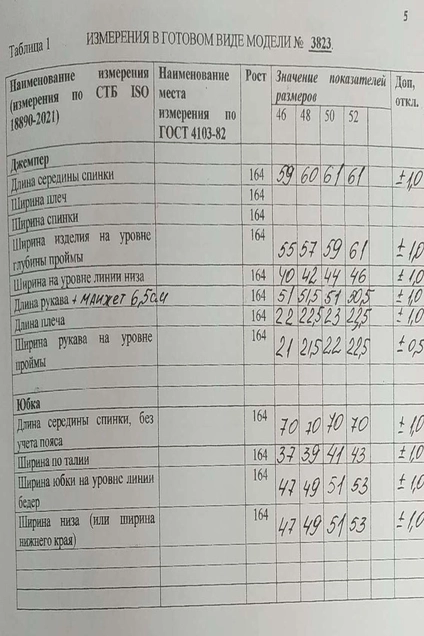 5
Таблица 1 ИЗМЕРЕНИЯ В ГОТОВОМ ВИДЕ МОДЕЛИ № 3823.
Наименование измерения (измерения по СТБ ISO 18890-2021) Наименование места измерения по ГОСТ 4103-82 Рост Значение показателей размеров Доп, откл.
46 48 50 52
Джемпер
Длина середины спинки 164 59 60 61 61 ± 1,0
Ширина плеч 164
Ширина спинки 164
Ширина изделия на уровне глубины проймы 164 55 57 59 61 ± 1,0
Ширина на уровне линии низа 164 40 42 44 46 ± 1,0
Длина рукава + манжет 6,5 см 164 51 51,5 51 50,5 ± 1,0
Длина плеча 164 22 22,5 23 23,5 ± 1,0
Ширина рукава на уровне проймы 164 21 21,5 22 22,5 ± 0,5
Юбка
Длина середины спинки, без учета пояса 164 70 70 70 70 ± 1,0
Ширина по талии 164 37 39 41 43 ± 1,0
Ширина юбки на уровне линии бедер 164 47 49 51 53 ± 1,0
Ширина низа (или ширина нижнего края) 164 47 49 51 53 ± 1,0